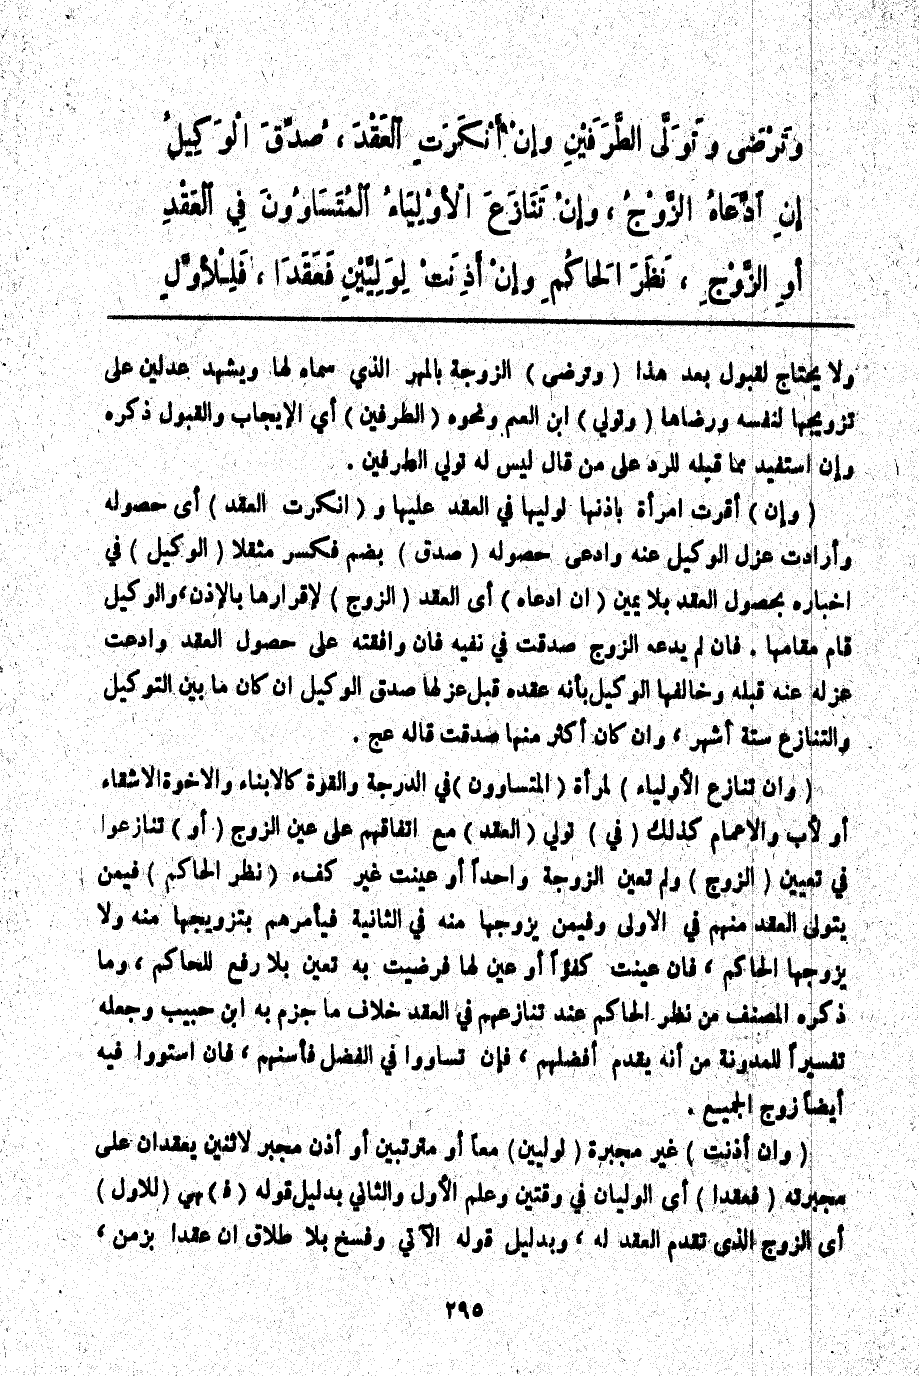 وَتَرْضَى وَتَوَلَّى الطَّرَفَيْنِ وإِنْ أَنْكَرَتِ اَلْعَقْدَ ، صُدِّقَ الْوَكِيلُ
إِنِ اَدَّعَاهُ الزَّوْجُ ، وإِنْ تَنَازَعَ الْأَوْلِيَاءُ اَلْمُتَسَاوُونَ فِي اَلْعَقْدِ
أَوِ الزَّوْجِ ، نَظَرَ الَحَاكُمِ وإِنْ أَذِنَتْ لِوَلِيَّيْنِ فَعَقَدَا ، فَلِلْأَوَّلِ
ولا يحتاج لقبول بعد هذا ( وترضى ) الزوجة بالمهر الذي سماه لها ويشهد عدلين على
تزويجها لنفسه ورضاها ( وتولي ) ابن العم ونحوه ( الطرفين ) أي الإيجاب والقبول ذكره
وإن استفيد مما قبله للرد على من قال ليس له تولي الطرفين .
( وإن ) أقرت امرأة باذنها لوليها في العقد عليها و ( انكرت العقد ) أى حصوله
وأرادت عزل الوكيل عنه وادعى حصوله ( صدق ) بضم فكسر مثقلا ( الوكيل ) في
اخباره بحصول العقد بلا يمين ( ان ادعاه ) أى العقد ( الزوج ) لإقرارها بالإذن،والوكيل
قام مقامها . فان لم يدعه الزوج صدقت في نفيه فان وافقته على حصول العقد وادعت
عزله عنه قبله وخالفها الوكيل بأنه عقده قبل عزلها صدق الوكيل ان كان ما بين التوكيل
والتنازع ستة أشهر ، وان كان أكثر منها صدقت قاله عج .
( وان تنازع الأولياء ) لمرأة ( المتساوون )في الدرجة والقوة كالابناء والاخوة الاشقاء
أو لأب والاعمام كذلك ( في ) تولي ( العقد ) مع اتفاقهم على عين الزوج ( أو ) تنازعوا
في تعيين ( الزوج ) ولم تعين الزوجة واحداً أو عينت غير كفء ( نظر الحاكم ) فيمن
يتولى العقد منهم في الاولى وفيمن يزوجها منه في الثانية فيأمرهم بتزويجها منه ولا
يزوجها الحاكم ، فان عينت كفؤاً أو عين لها فرضيت به تعين بلا رفع للحاكم ، وما
ذكره المصنف من نظر الحاكم عند تنازعهم في العقد خلاف ما جزم به ابن حبيب وجعله
تفسيراً للمدونة من أنه يقدم أفضلهم ، فإن تساووا في الفضل فأسنهم ، فان استووا فيه
أيضاً زوج الجميع .
( وان أذنت ) غير مجبرة ( لوليين) معاً أو مترتبين أو أذن مجبر لاثنين يعقدان على
مجبرته ( فعقدا ) أى الوليان في وقتين وعلم الأول والثاني بدليل قوله ( ف ) هي (للاول )
أى الزوج الذى تقدم العقد له ، وبدليل قوله الآتي وفسخ بلا طلاق ان عقدا بزمن ،
٢٩٥